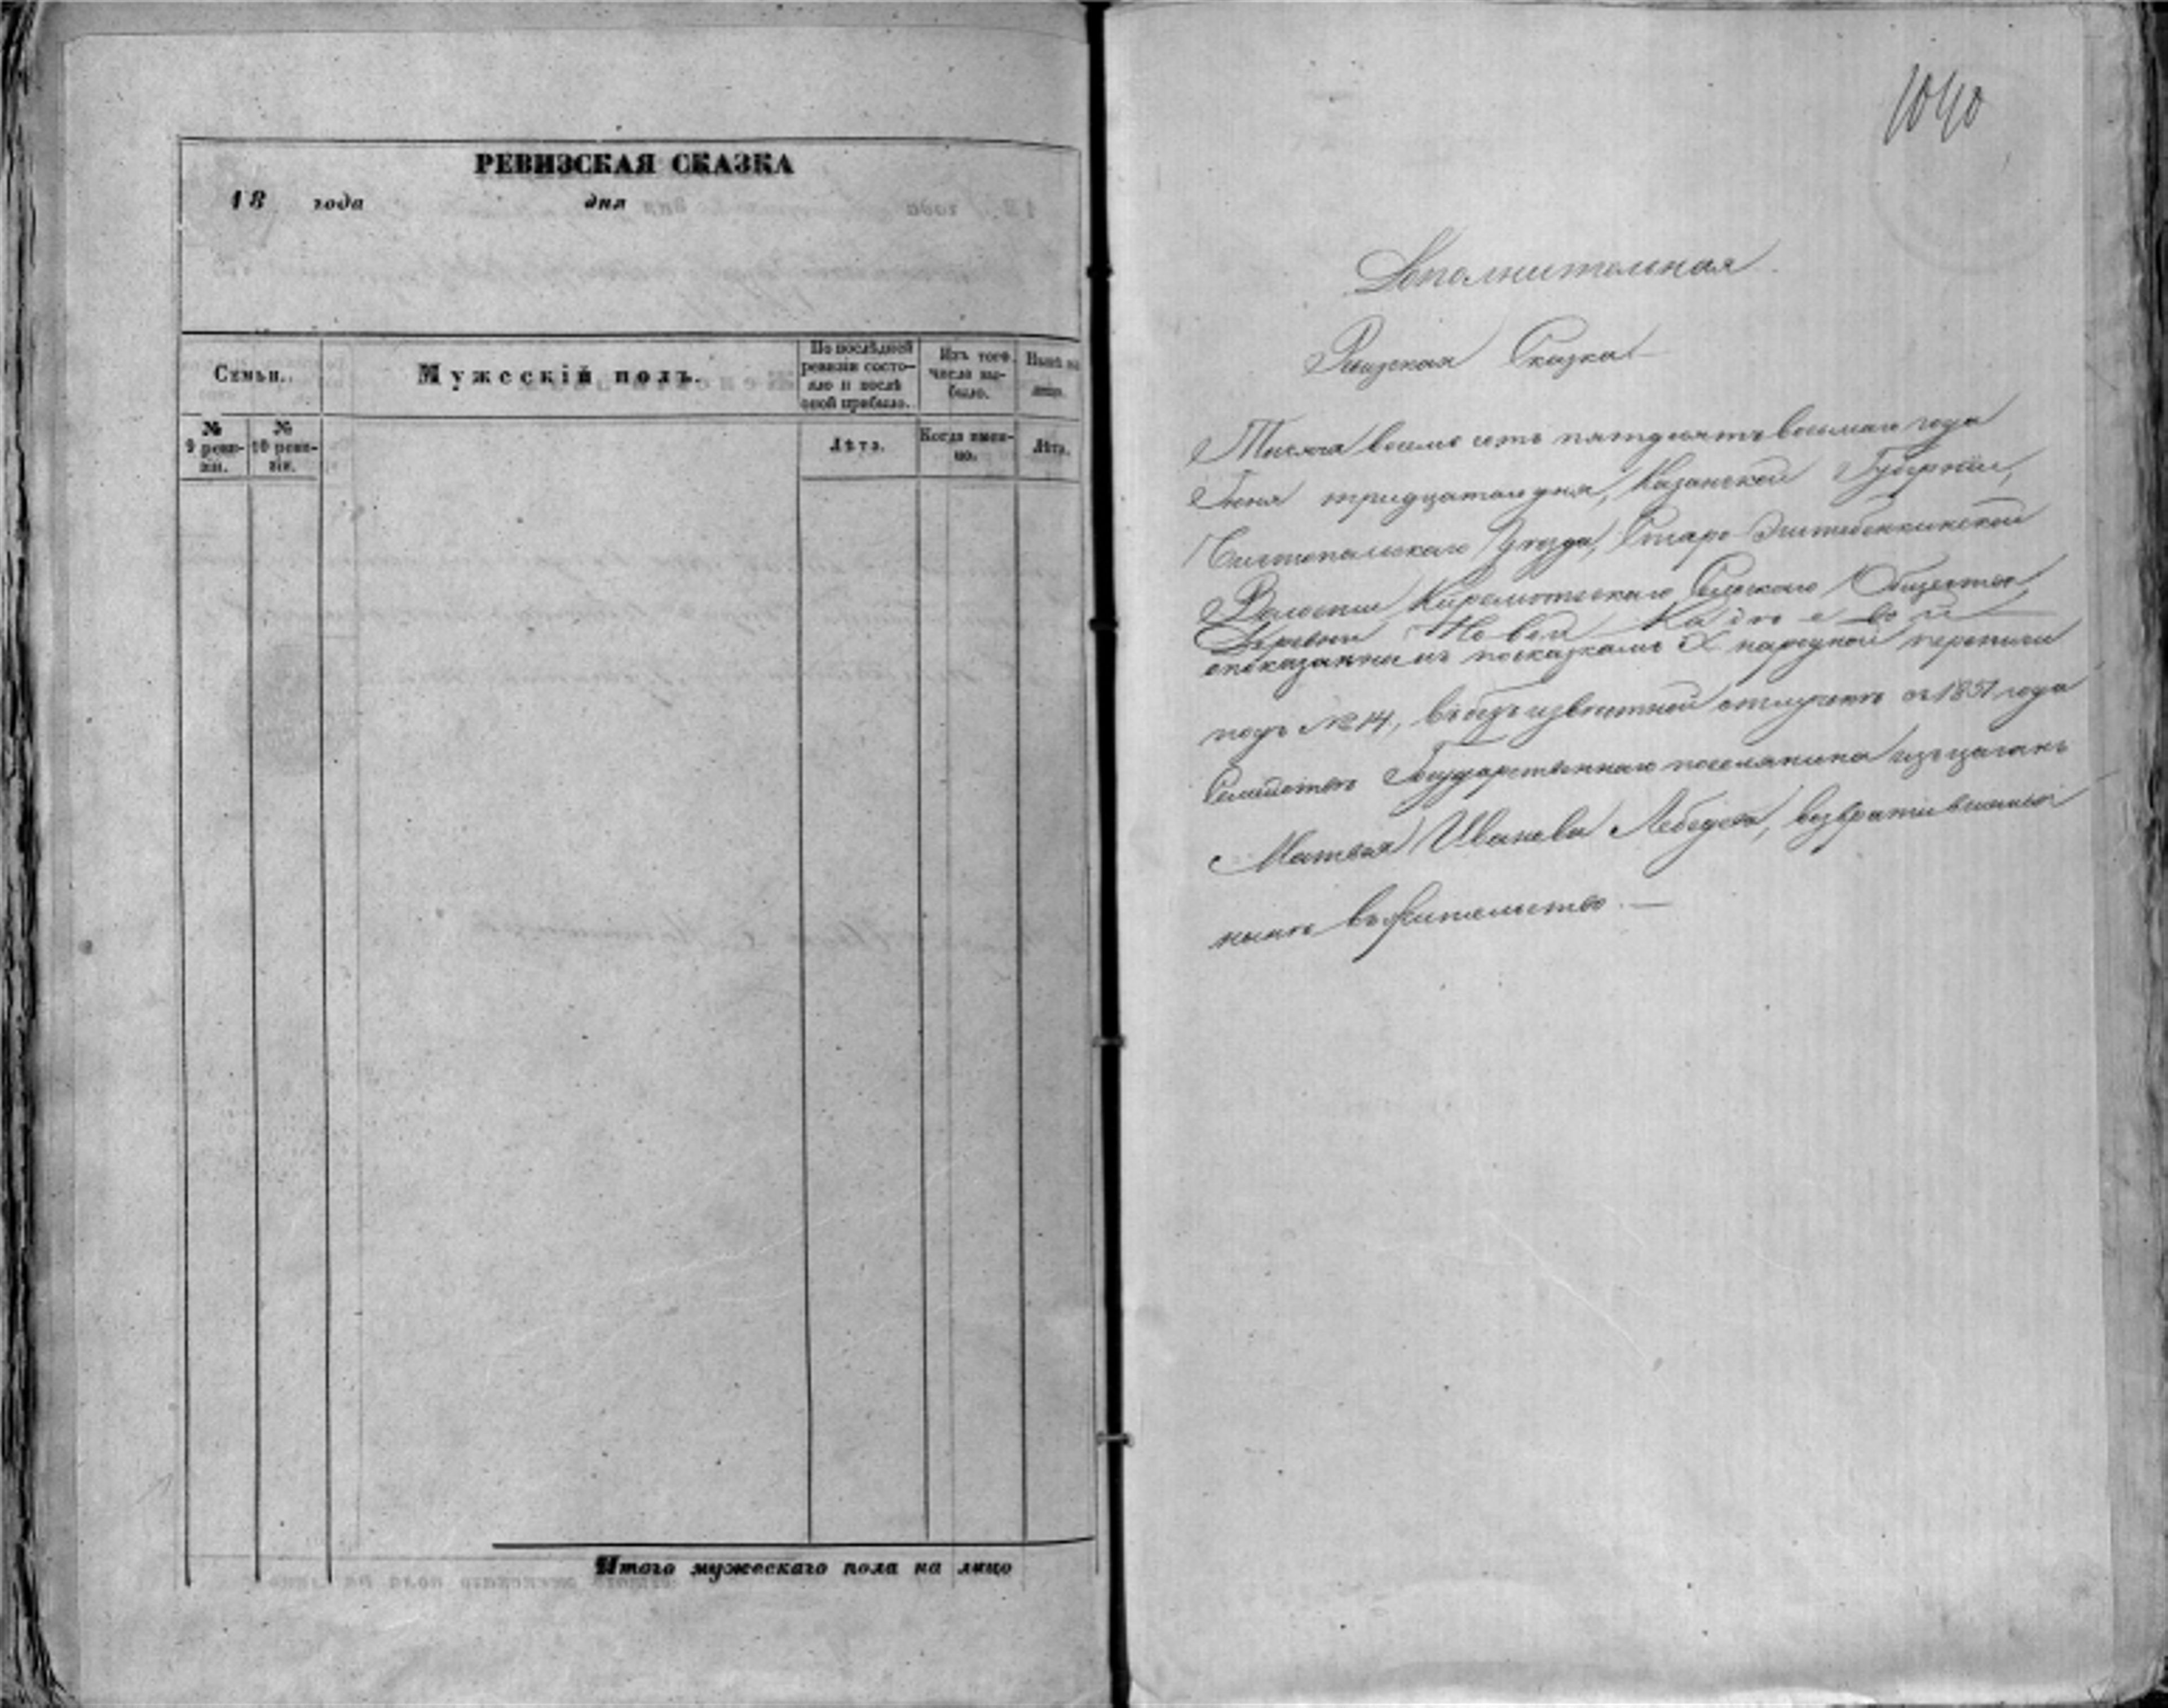 РЕВИЗСКАЯ СКАЗКА
18 года дня
Семьи.
Мужескій полъ.
По послѣдней ревизіи состояло и послѣ оной прибыло.
Изъ того числа выбыло.
Нынѣ на лицо.
№ 9 ревизіи.
№ 10 ревизіи.
Лѣта.
Когда именно.
Лѣта.
Итого мужескаго пола на лицо
1040
Дополнительная
Ревизская Сказка
Тысяча восемь сотъ пятдесятъ восьмаго года
Іюня тридцатаго дня, Казанской Губерніи,
Чистопольскаго Уѣзда, Старо-
Волости Киреметскаго Сельскаго Общества,
Деревни Новой
опоказанномъ посказкамъ X народной переписи
подъ № 14, въ безъизвѣстной отлучкѣ съ 1851 года
Семействѣ Государственнаго поселянина изъ цыганъ
Матвея Иванова Лебедева, возвратившемся
нынѣ въ жительство. —